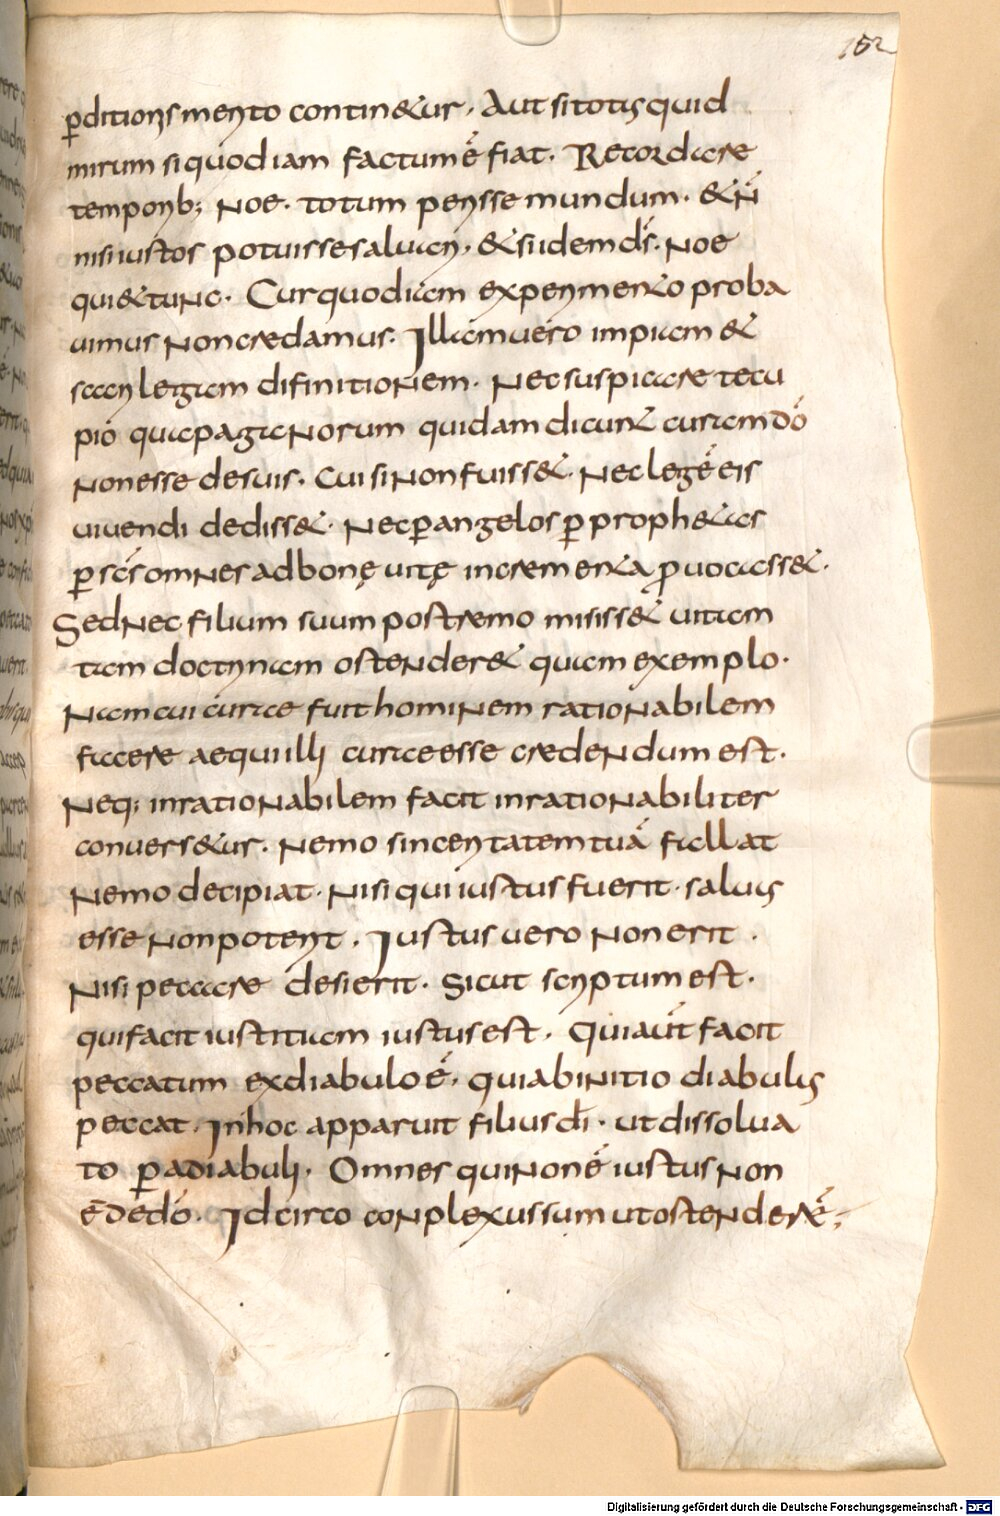 152
ꝑditionis merito contin&ur. Aut si totis quid
mirum si quod iam factum ē fiat. Recordare
temporib; Noe. totum perisse mundum. & n̄
nisi iustos potuisse saluari. & si idem ds̄. Noe
qui & tunc. Cur quod iam experimento proba
uimus non credamus. Illam uero impiam &
sacrilegam difinitionem. Nec suspicare te cu
pio qua paganorum quidam dicunt curam dō
non esse de suis. Cui si non fuiss&. Nec legē eis
uiuendi dediss&. Nec ꝑ angelos ꝑ proph&as
ꝑ scōs omnes ad bonę uitę incrementa ꝓuocass&.
Sed nec filium suum postremo misiss& uitam
tam doctrinam ostender& quam exemplo.
Nam cui curae fuit hominem rationabilem
facere aequi illi curae esse credendum est.
Neq; inrationabilem facit inrationabiliter
conuers&ur. Nemo sinceritatem tuā fallat
Nemo decipiat. Nisi qui iustus fuerit. saluus
esse non poterit. Iustus uero non erit.
Nisi peccare desierit. Sicut scriptum est.
qui facit iustitiam iustus est. Qui aūt facit
peccatum ex diabulo ē. quia b initio diabulus
peccat. In hoc apparuit filius dī. ut dissolua
to ꝑa diabuli. Omnes qui non ē iustus non
ē de dō. Idcirco conplexus sum ut ostenderē;
Digitalisierung gefördert durch die Deutsche Forschungsgemeinschaft - DFG